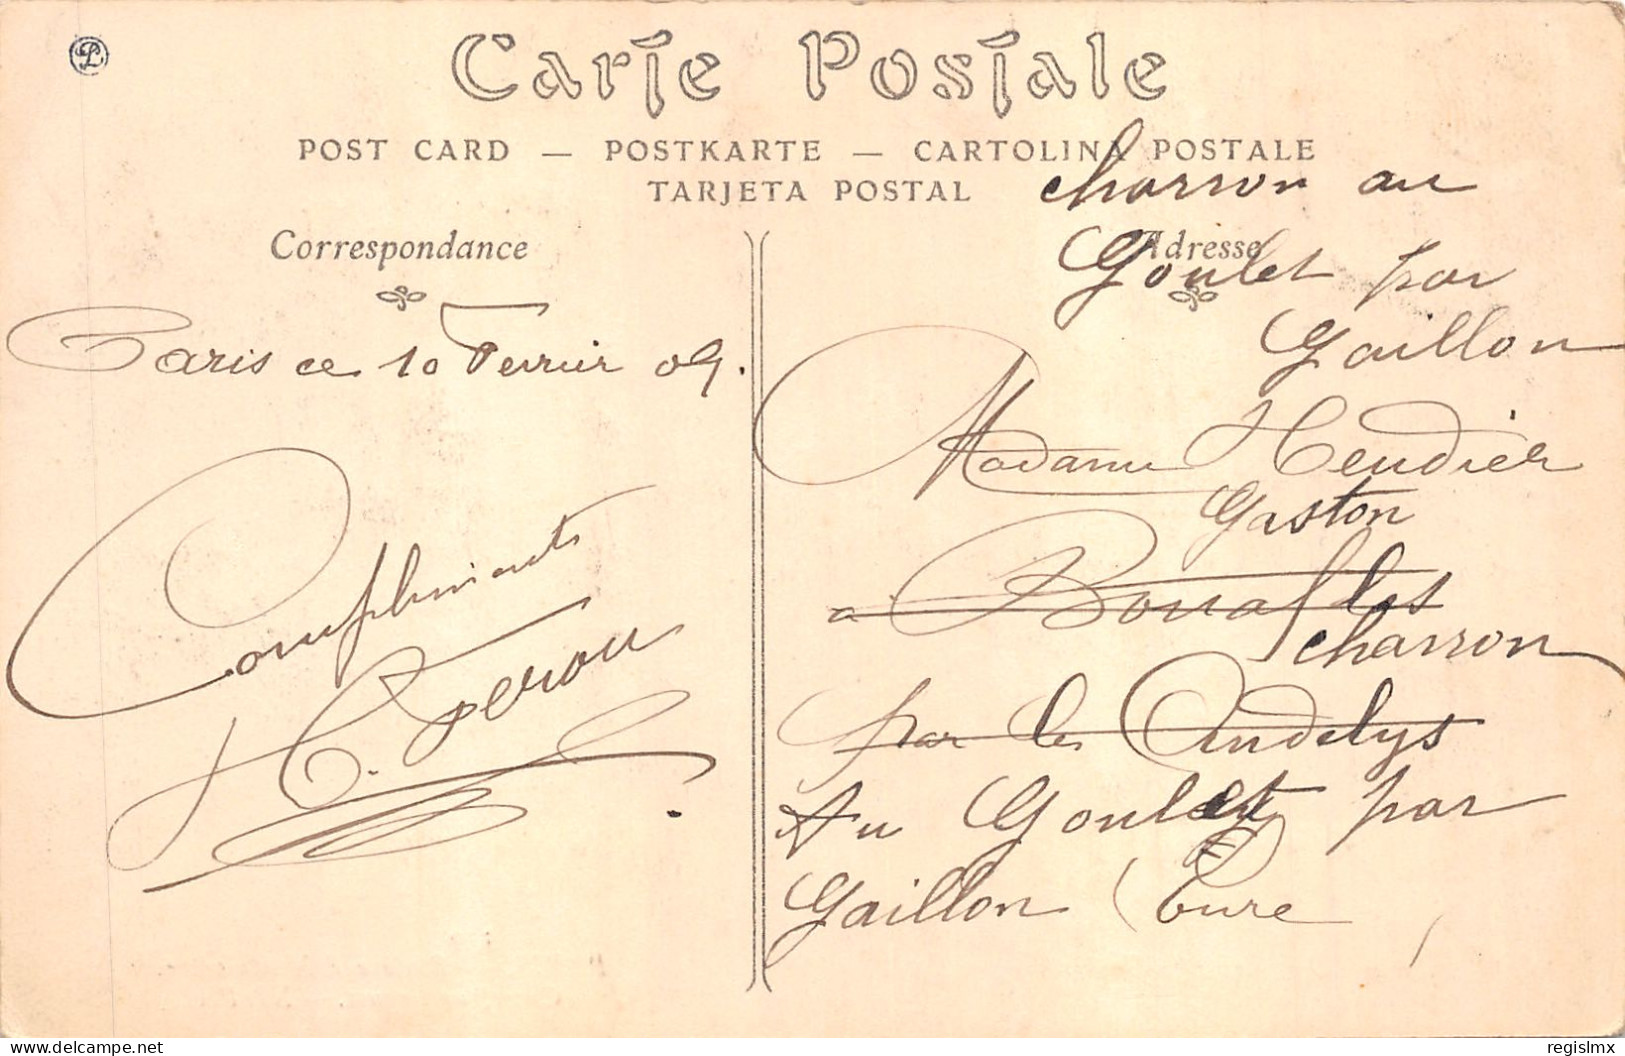 Carte Postale
POST CARD — POSTKARTE — CARTOLINA POSTALE
TARJETA POSTAL
Correspondance
Paris ce 10 Fevrier 09.
Compliments
Adresse
charron au
Goulet par
Gaillon
Madame Hendier
Gaston
a Bouafles
charron
par les Andelys
Au Goulet par
Gaillon (Eure
delcampe.net
regislmx